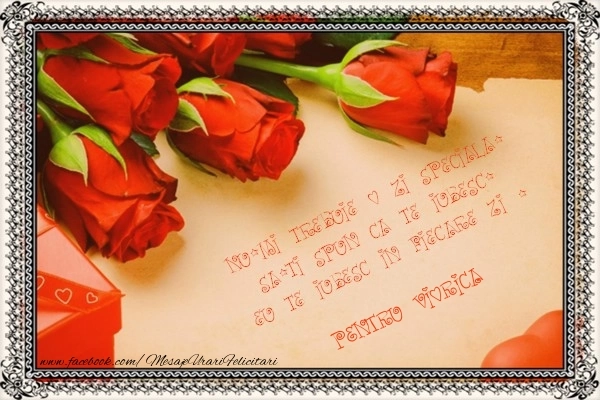 NU*MI TREBUIE O ZI SPECIALA*
SA*TI SPUN CA TE IUBESC*
EU TE IUBESC IN FIECARE ZI *
PENTRU VIORICA
www.facebook.com/MesajeUrariFelicitari